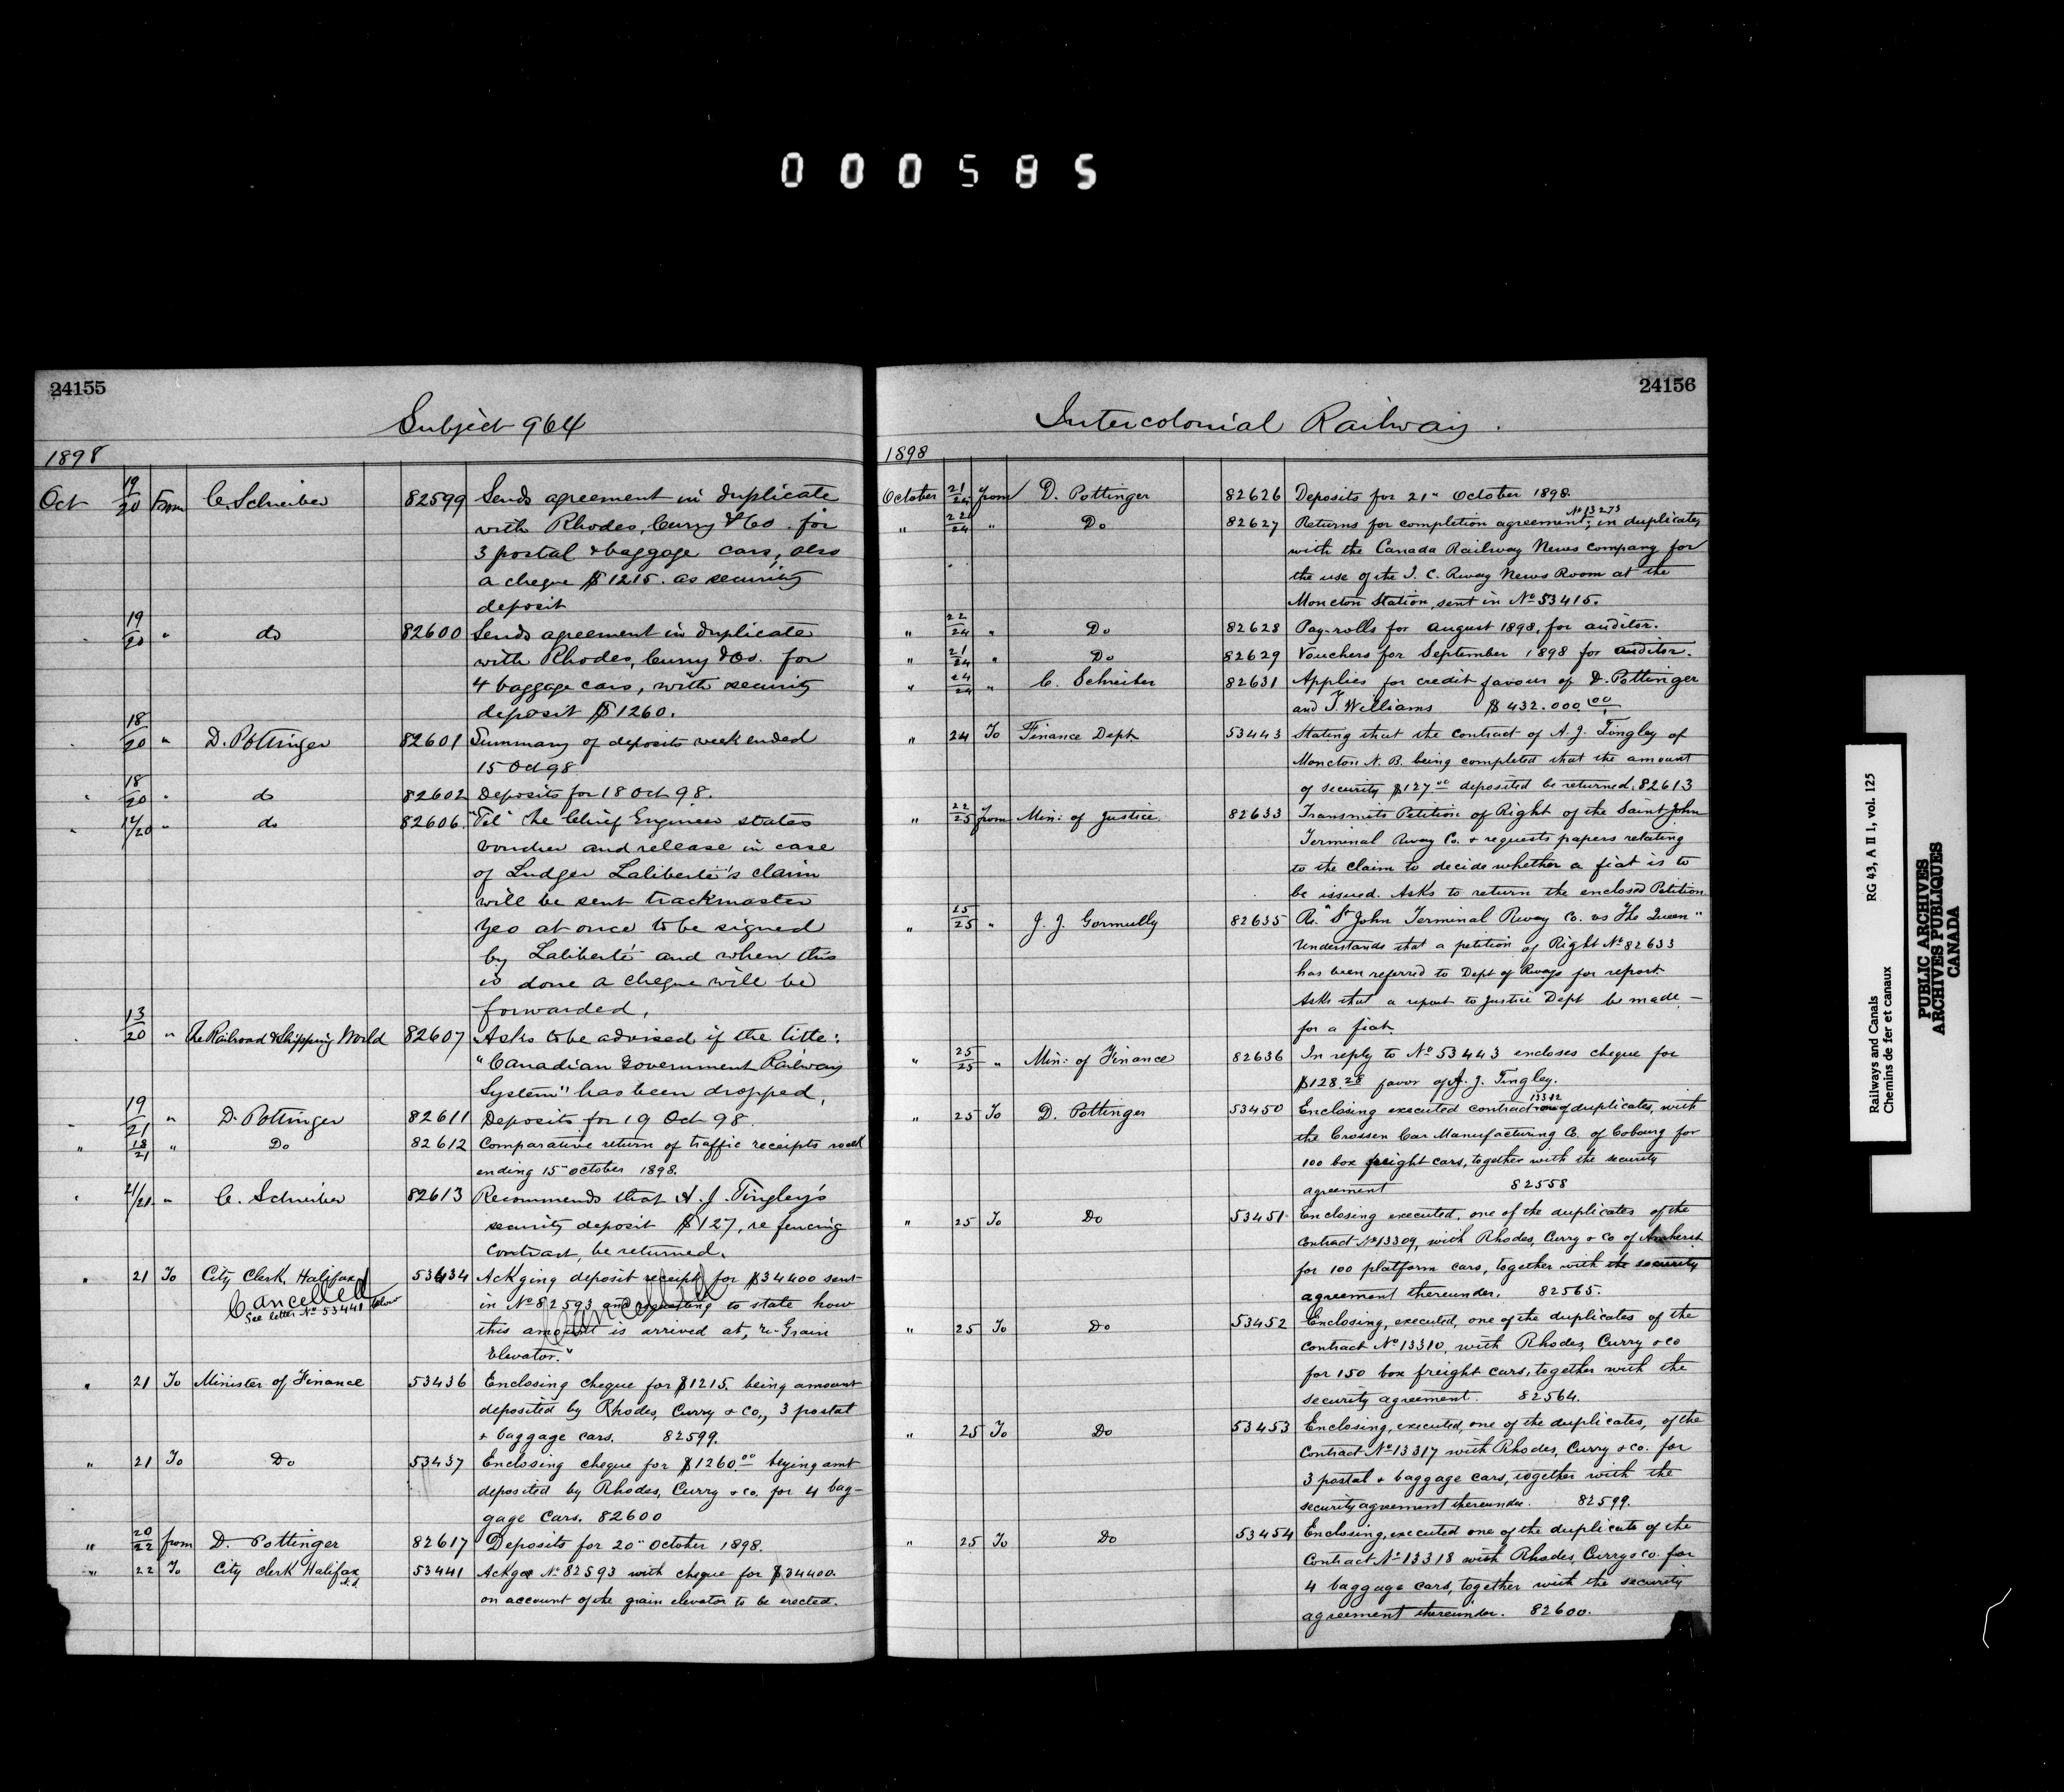 000585
24155
Subject 964
1898
Oct 19/20 From C. Schreiber 82599 Sends agreement in duplicate
with Rhodes, Curry & Co. for
3 postal & baggage cars, also
a cheque $1215. as security
deposit
" 19/20 " do 82600 Sends agreement in duplicate
with Rhodes, Curry & Co. for
4 baggage cars, with security
deposit $1260.
" 18/20 " D. Pottinger 82601 Summary of deposits week ended
15 Oct 98
" 18/20 " do 82602 Deposits for 18 Oct 98.
" 14/20 " do 82606. "Tel" The Chief Engineer states
voucher and release in case
of Ludger Laliberté's claim
will be sent trackmaster
Yeo at once to be signed
by Laliberté and when this
is done a cheque will be
forwarded,
" 13/20 " The Railroad & Shipping World 82607 Asks to be advised if the title:
"Canadian Government Railway
System" has been dropped,
" 19/21 " D. Pottinger 82611 Deposits for 19 Oct 98.
" 18/21 " Do 82612 Comparative return of traffic receipts week
ending 15" October 1898.
" 21/21 " C. Schreiber 82613 Recommends that A. J. Tingley's
security deposit $127, re fencing
contract, be returned.
" 21 To City Clerk, Halifax 53434 Ackging deposit receipt for $34400 sent
Cancelled
See letter No 53441 below
in No 82593 and requesting to state how
Cancelled
this amount is arrived at, re "Grain
Elevator."
" 21 To Minister of Finance 53436 Enclosing cheque for $1215. being amount
deposited by Rhodes, Curry & Co., 3 postal
& baggage cars. 82599.
" 21 To Do 53437 Enclosing cheque for $1260.00 beying amt
deposited by Rhodes, Curry & Co. for 4 bag-
gage cars. 82600
" 20/22 from D. Pottinger 82617 Deposits for 20" October 1898.
" 22 To City clerk Halifax 53441 Ackge No 82593 with cheque for $34400.
on account of the grain elevator to be erected.
24156
Intercolonial Railway.
1898
October 21/24 from D. Pottinger 82626 Deposits for 21" October 1898.
" 22/24 " Do 82627 Returns for completion agreement, No 13273 in duplicate,
with the Canada Railway News Company for
the use of the I. C. Rway News Room at the
Moncton Station, sent in No 53415.
" 22/24 " Do 82628 Pay-rolls for August 1898, for auditor.
" 21/24 " Do 82629 Vouchers for September 1898 for auditor.
" 24/24 " C. Schreiber 82631 Applies for credit favour of D. Pottinger
and T. Williams $432.000.00
" 24 To Finance Dept 53443 Stating that the contract of A. J. Tingley of
Moncton N. B. being completed that the amount
of security $127.00 deposited be returned. 82613
" 22/25 from Min: of Justice 82633 Transmits Petition of Right of the Saint John
Terminal Rway Co. & requests papers relating
to the claim to decide whether a fiat is to
be issued. Asks to return the enclosed Petition
" 25/25 " J. J. Gormully 82635 Re. "St John Terminal Rway Co. vs The Queen"
Understands that a petition of Right No 82633
has been referred to Dept of Rways for report.
Asks that a report to Justice Dept be made -
for a fiat.
" 25/25 " Min: of Finance 82636 In reply to No 53443 encloses cheque for
$128.28 favor of A. J. Tingley.
" 25 To D. Pottinger 53450 Enclosing executed contract 13312 one of duplicates, with
the Crossen Car Manufacturing Co. of Cobourg for
100 box freight cars, together with the security
agreement 82558
" 25 To Do 53451 Enclosing executed, one of the duplicates of the
Contract No 13309, with Rhodes, Curry & Co of Amherst
for 100 platform cars, together with the security
agreement thereunder. 82565.
" 25 To Do 53452 Enclosing, executed, one of the duplicates of the
Contract No 13310, with Rhodes, Curry & co
for 150 box freight cars, together with the
security agreement. 82564.
" 25 To Do 53453 Enclosing, executed, one of the duplicates, of the
Contract No 13317 with Rhodes, Curry & co. for
3 postal & baggage cars, together with the
security agreement thereunder. 82599.
" 25 To Do 53454 Enclosing, executed one of the duplicate of the
Contract No 13318 with Rhodes, Curry & co. for
4 baggage cars, together with the security
agreement thereunder. 82600.
Railways and Canals RG 43, A II 1, vol. 125
Chemins de fer et canaux
PUBLIC ARCHIVES
ARCHIVES PUBLIQUES
CANADA